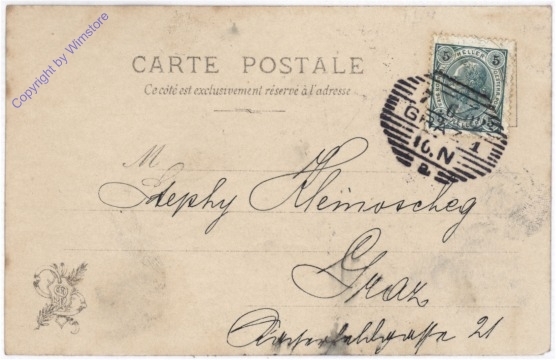 CARTE POSTALE
Ce côté est exclusivement réservé à l'adresse
5 HELLER 5
GRAZ 1
10.N
M
Stephy Kleinoscheg
Graz
21
Copyright by Wimstore